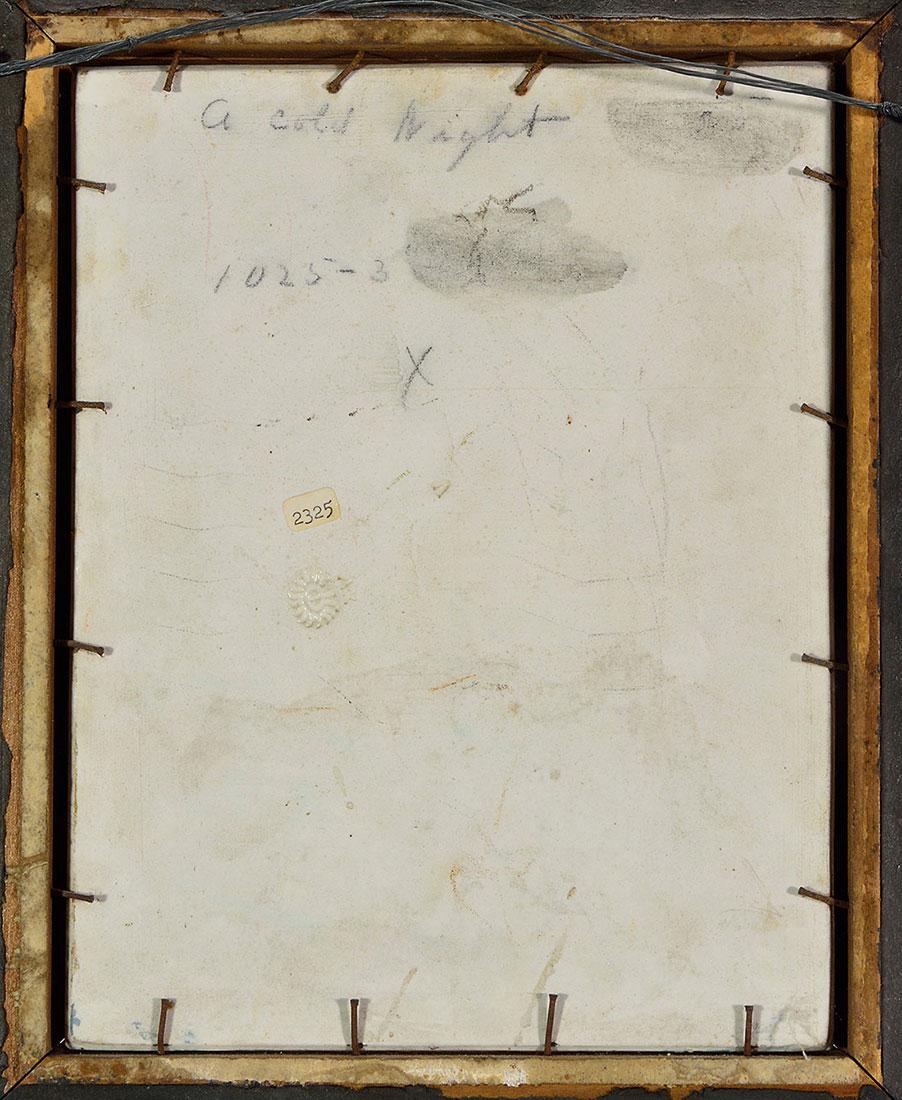 A cold Night
1025-3
X
2325